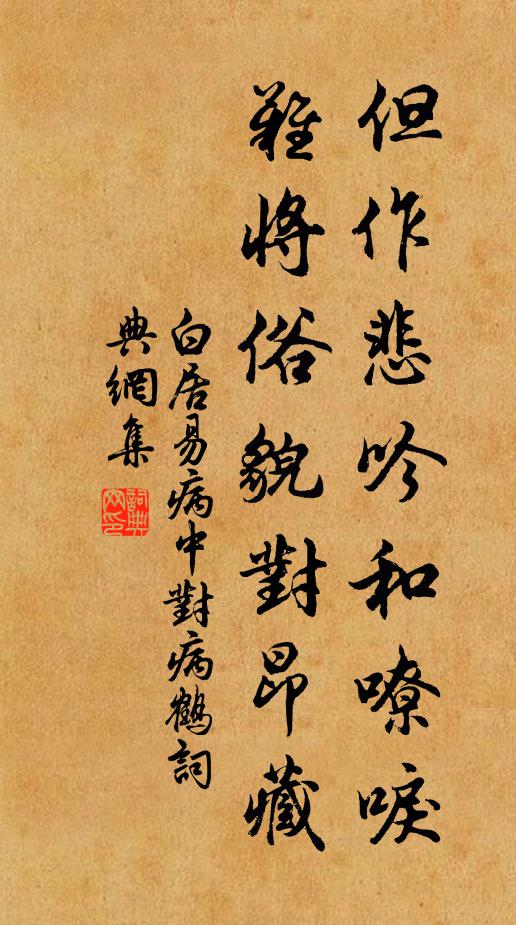 但作悲吟和嘹唳
難將俗貌對昂藏
白居易病中對病鶴詞
典網集
詞典網印